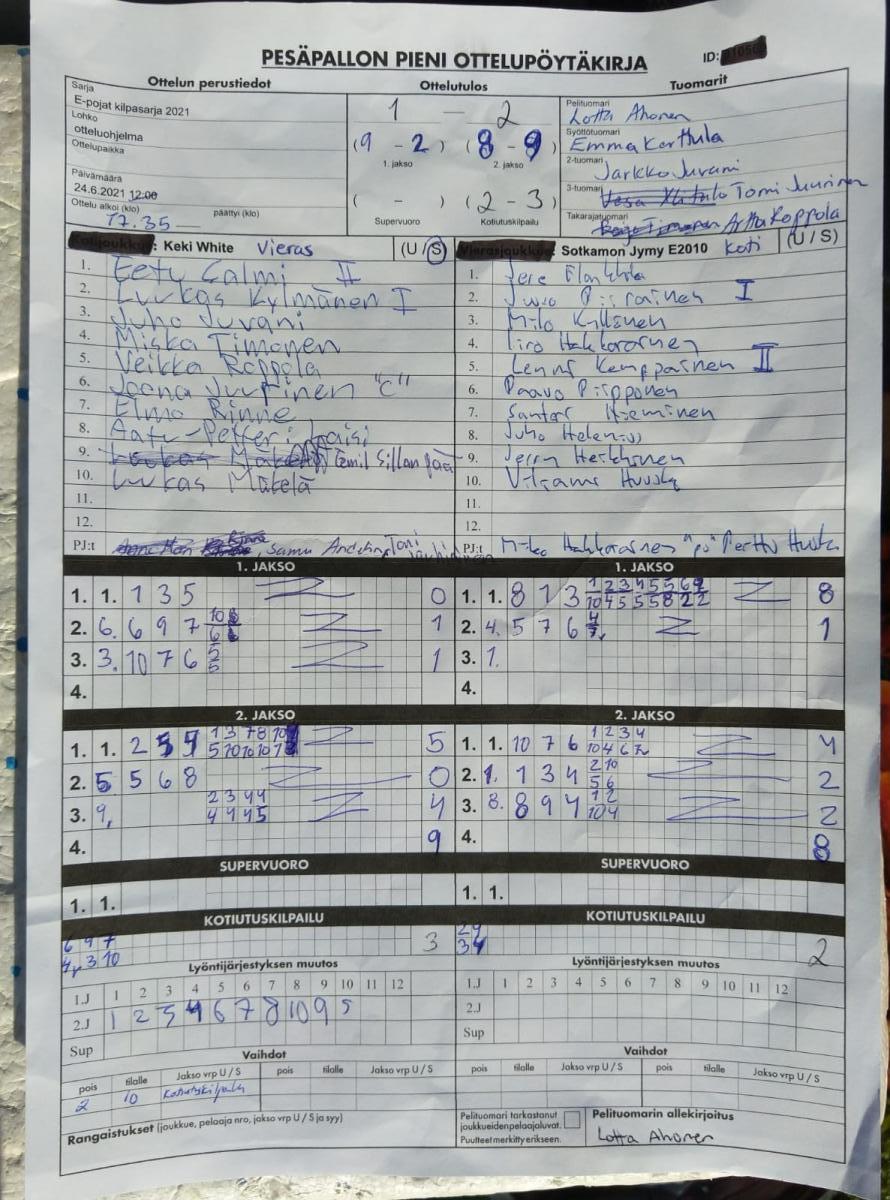 PESÄPALLON PIENI OTTELUPÖYTÄKIRJA ID:
Ottelun perustiedot Ottelutulos Tuomarit
Sarja
E-pojat kilpasarja 2021
Lohko
otteluohjelma
Ottelupaikka
Päivämäärä
24.6.2021 12:00
Ottelu alkoi (klo) päättyi (klo)
17.35
1 — 2
(9 - 2) (8 - 9)
1. jakso 2. jakso
( - ) (2 - 3)
Supervuoro Kotiutuskilpailu
Pelituomari
Lotta Ahonen
Syöttötuomari
Emma Karttula
2-tuomari
Jarkko Juvani
3-tuomari
Tomi Juurinen
Takarajatuomari
Arttu Roppola
: Keki White Vieras (U / S)
1. Eetu Calmi II
2. Luukas Kylmänen I
3. Juho Juvani
4. Miska Timonen
5. Veikka Roppola
6. Joona Juurinen "C"
7. Elmo Rinne
8. Aatu-Petteri
9. Eemil Sillanpää
10. Luukas Mäkelä
11.
12.
PJ:t Samu Toni
Vierasjoukkue: Sotkamon Jymy E2010 Koti (U / S)
1. Jere
2. Juuso Piirainen I
3. Milo Kyllönen
4. Iiro Hakkarainen
5. Lenni Kemppainen II
6. Paavo Piipponen
7. Santeri
8. Juho Helenius
9. Jerry Heikkinen
10.
11.
12.
PJ:t Mika Hakkarainen "pj" Perttu
1. JAKSO 1. JAKSO
1. 1. 1 3 5 0
2. 6. 6 9 7 1
3. 3. 10 7 6 5 1
5
4.
1. 1. 8 1 3 8
2. 4. 5 7 6 1
3. 1.
4.
2. JAKSO 2. JAKSO
1. 1. 2 5
2. 5 5 6 8 0
3. 9, 2 3 4 4 4
4 4 4 5
4. 9
1. 1. 10 7 6 1 2 3 4 4
10 4 6 7
2. 1. 1 3 4 2 10 2
5 6
3. 8. 8 9 4 1 2 2
10 4
4. 8
SUPERVUORO SUPERVUORO
1. 1. 1. 1.
KOTIUTUSKILPAILU KOTIUTUSKILPAILU
6 9 7 3
3 10
2 4 2
3 4
Lyöntijärjestyksen muutos Lyöntijärjestyksen muutos
1.J 1 2 3 4 5 6 7 8 9 10 11 12
2.J 1 2 3 4 6 7 8 10 9 5
Sup
1.J 1 2 3 4 5 6 7 8 9 10 11 12
2.J
Sup
Vaihdot Vaihdot
pois tilalle Jakso vrp U / S pois tilalle Jakso vrp U / S
2 10 Kotiutuskilpailu
pois tilalle Jakso vrp U / S pois tilalle Jakso vrp U / S
Rangaistukset (joukkue, pelaaja nro, jakso vrp U / S ja syy)
Pelituomari tarkastanut
joukkueidenpelaajaluvat.
Puutteet merkitty erikseen.
Pelituomarin allekirjoitus
Lotta Ahonen